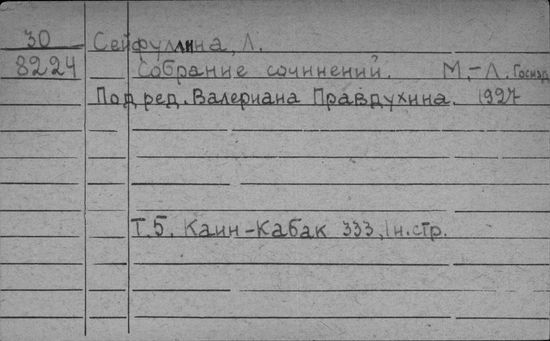 30 Сейфуллина, Л.
8224 Собрание сочинений. М.-Л. Госизд
Под ред. Валериана Правдухина. 1927
Т.5. Каин-Кабак 333, 1 н.стр.